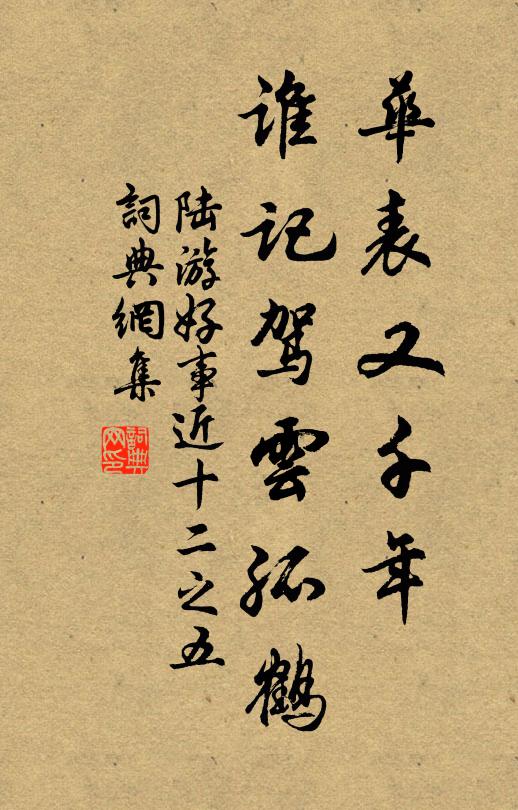 華表又千年
誰记駕雲孤鶴
陆游好事近十二之五
詞典網集
詞典
网印